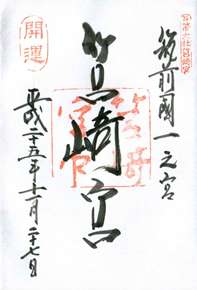 筑前國一之宮
筥崎宮
筥崎宮
開運
平成二十五年十一月二十七日